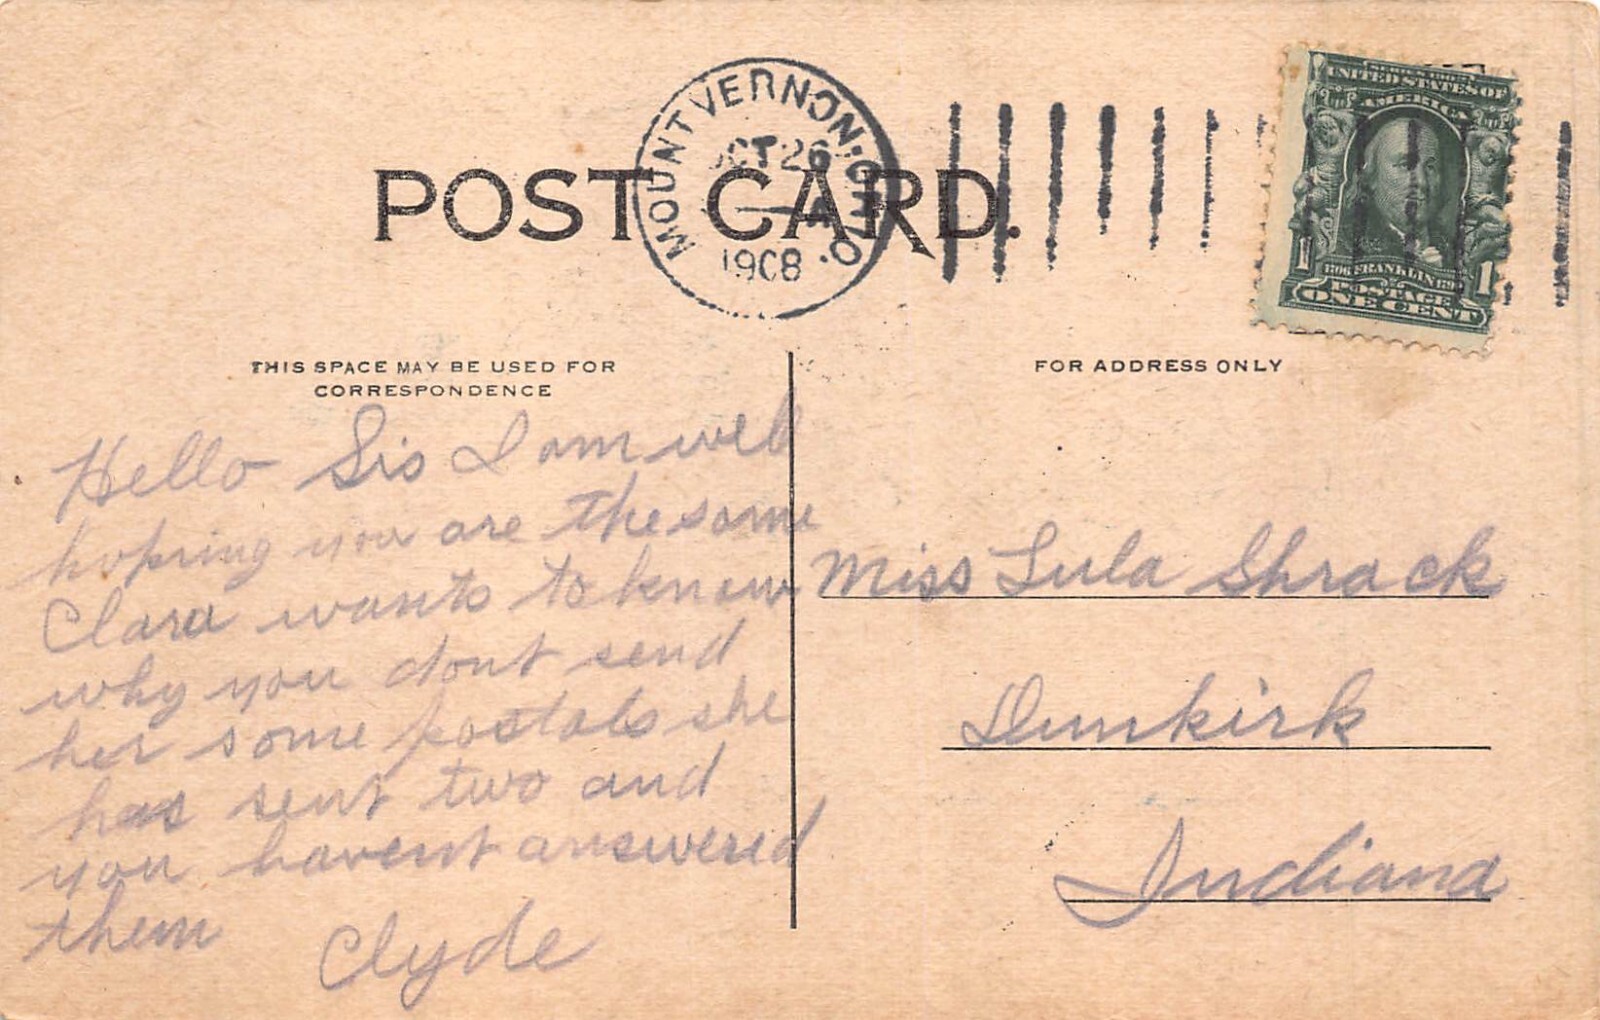 MOUNT VERNON, OHIO.
OCT 26
A
1908
POST CARD.
SERIES 1902
UNITED STATES OF
AMERICA
1 1
1706 FRANKLIN 1790
POSTAGE
ONE CENT
THIS SPACE MAY BE USED FOR
CORRESPONDENCE
FOR ADDRESS ONLY
Hello Sis I am well
hoping you are the same
Clara wants to know
why you dont send
her some postals she
has sent two and
you havent answered
them
Clyde
Miss Lula Shrack
Dunkirk
Indiana